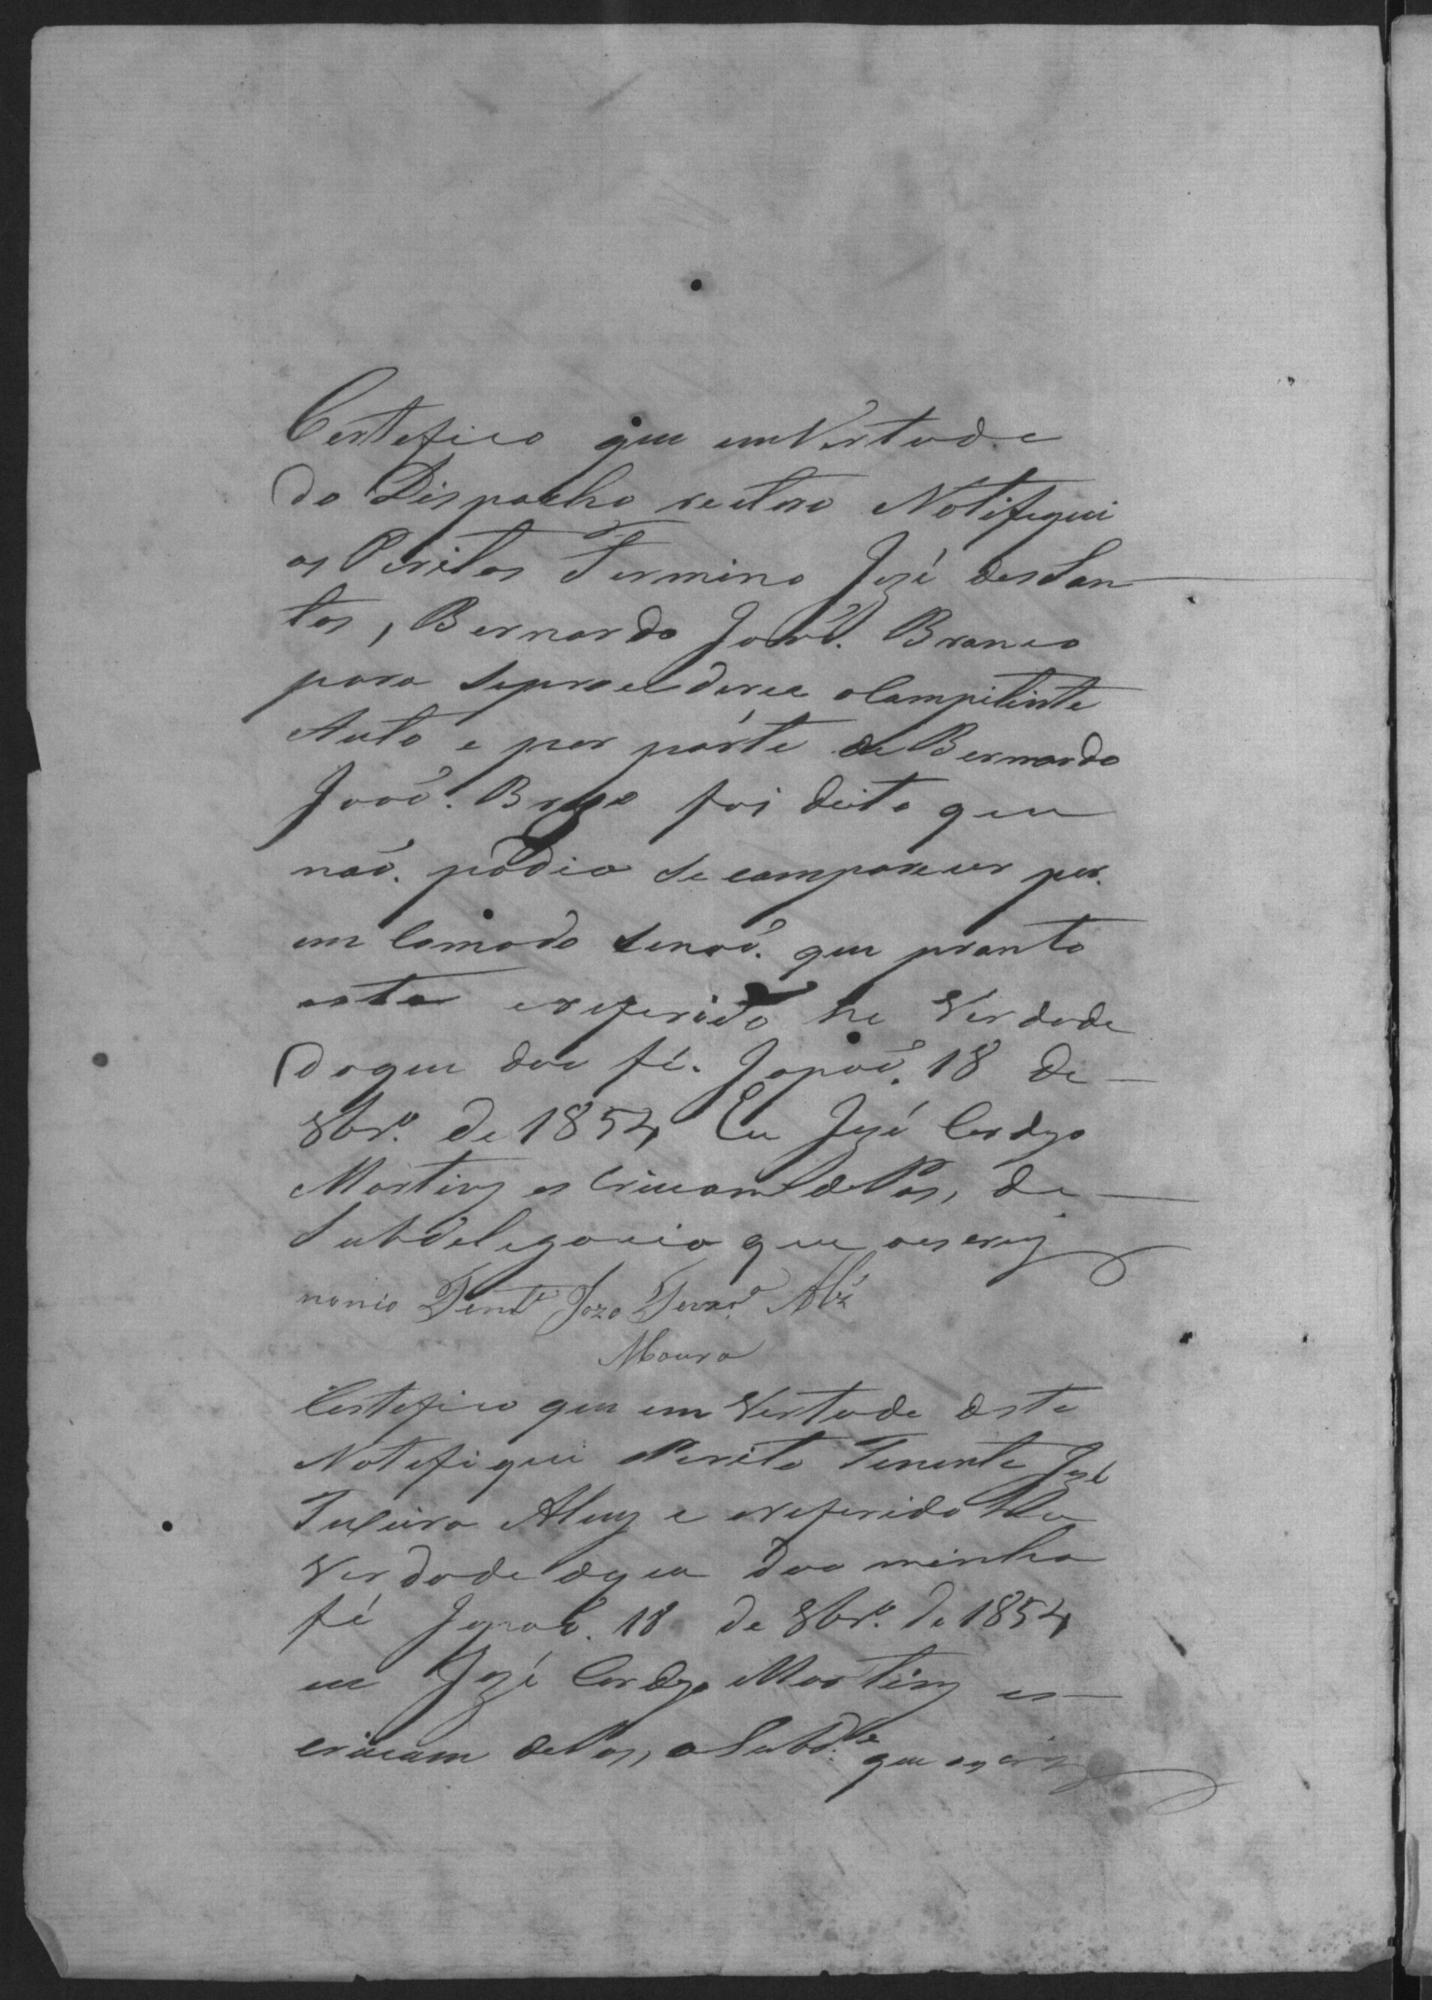 Certefico que em Vertude
do Dispacho retro Notifiquei
os Peritos Fermino José dos San
tos, Bernardo Joaõ. Branco
para se proceder a Compitente
Auto e por párte de Bernardo
Joaõ. Branco foi deito que
naõ. pódia se comparecer por
em Comodo senaõ. que pronto
esta e referido he Verdade
do que dou fé. Japaõ. 18 de
8br.º de 1854 Eu José
Martins escrivam de Pas, da
Subdelegacia que escrevy
nomio Tent.e José Teixr.ª Alz
Moura
Certefico que em Vertude deste
Notefiquei Perito Tenente José
Teixeira Alvez e o referido he
Verdade do que dou minha
fé Japaõ. 18 de 8br.º de 1854
eu José Martins es
crivam de Pas, e Subd.cia que escrevy